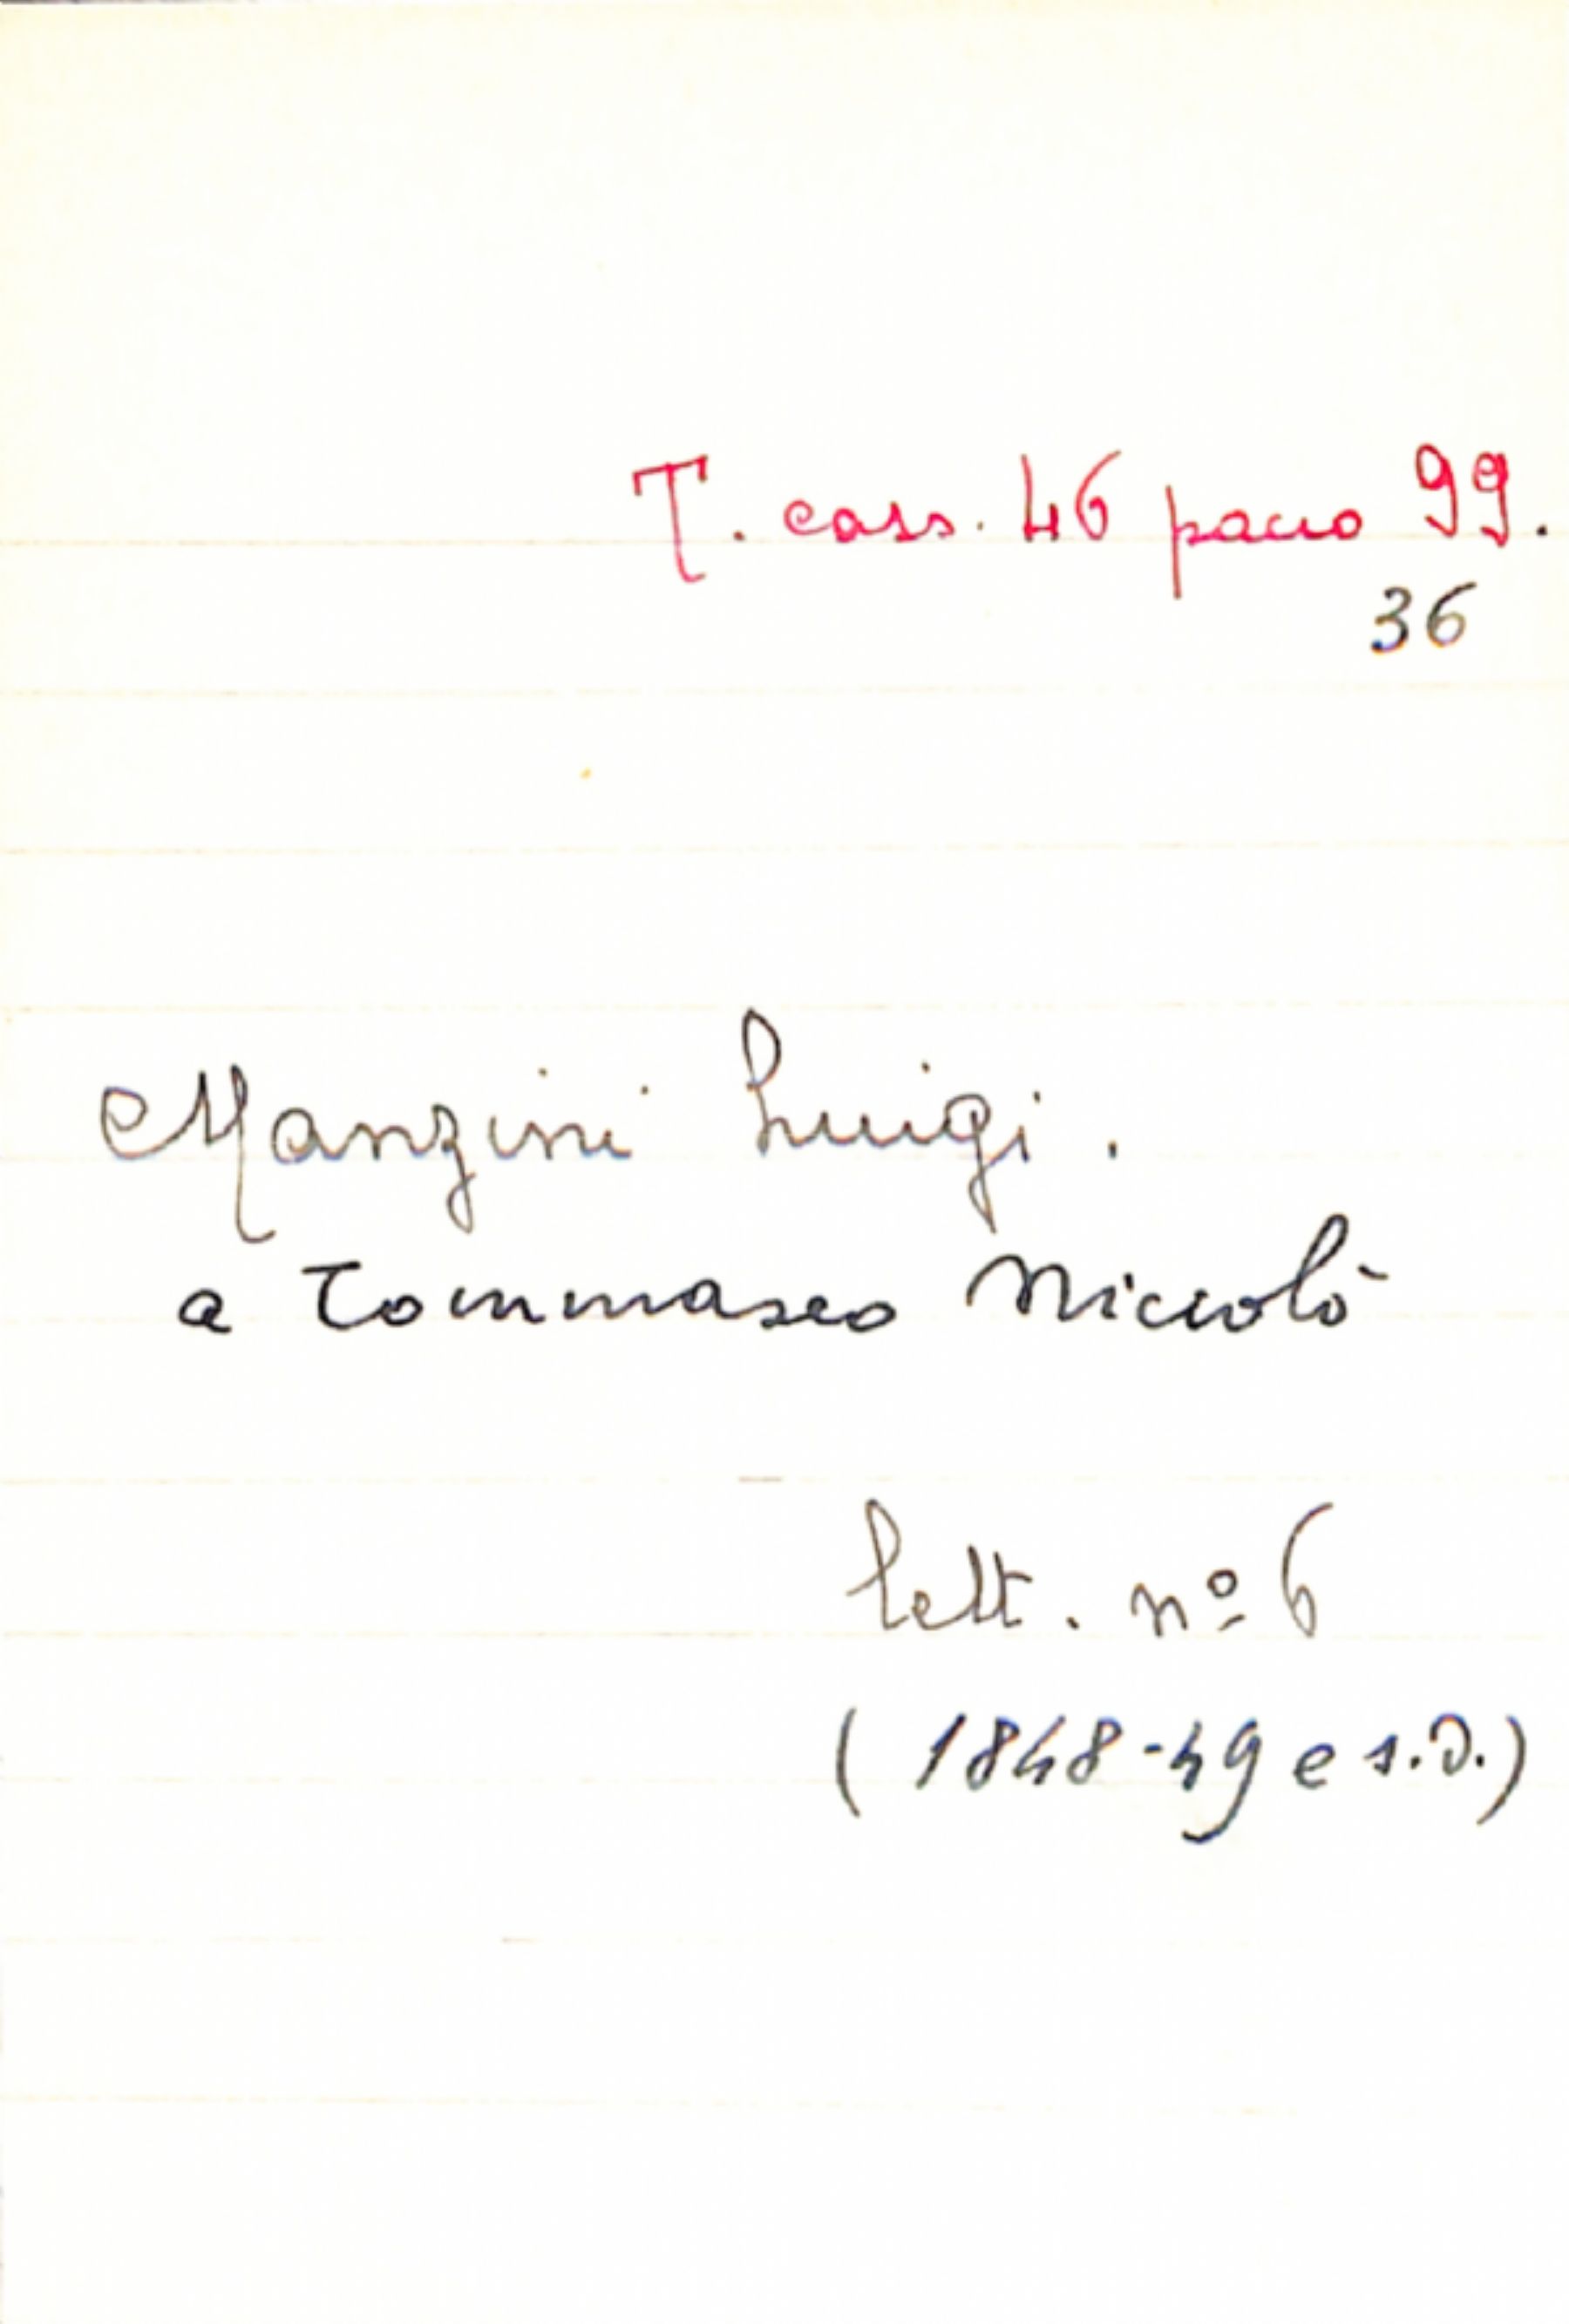 T. cass. 46 pacco 99.
36
Manzini Luigi.
a Tommaseo Niccolò
lett. nº 6
(1848-49 e s.d.)